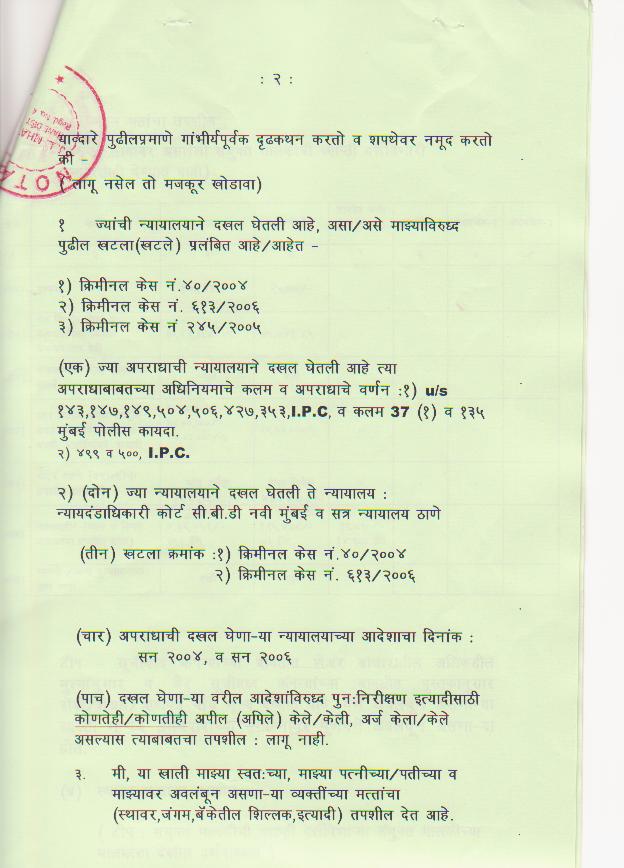 : २ :
याव्दारे पुढीलप्रमाणे गांभीर्यपूर्वक दृढकथन करतो व शपथेवर नमूद करतो
की -
( लागू नसेल तो मजकूर खोडावा)
१ ज्यांची न्यायालयाने दखल घेतली आहे, असा/असे माझ्याविरुध्द
पुढील खटला(खटले) प्रलंबित आहे/आहेत -
१) क्रिमीनल केस नं.४०/२००४
२) क्रिमीनल केस नं. ६१३/२००६
३) क्रिमीनल केस नं २४५/२००५
(एक) ज्या अपराधाची न्यायालयाने दखल घेतली आहे त्या
अपराधाबाबतच्या अधिनियमाचे कलम व अपराधाचे वर्णन :१) u/s
१४३,१४७,१४९,५०४,५०६,४२७,३५३,I.P.C, व कलम 37 (१) व १३५
मुंबई पोलीस कायदा.
२) ४९९ व ५००, I.P.C.
२) (दोन) ज्या न्यायालयाने दखल घेतली ते न्यायालय :
न्यायदंडाधिकारी कोर्ट सी.बी.डी नवी मुंबई व सत्र न्यायालय ठाणे
(तीन) खटला क्रमांक :१) क्रिमीनल केस नं.४०/२००४
२) क्रिमीनल केस नं. ६१३/२००६
(चार) अपराधाची दखल घेणा-या न्यायालयाच्या आदेशाचा दिनांक :
सन २००४, व सन २००६
(पाच) दखल घेणा-या वरील आदेशांविरुध्द पुन:निरीक्षण इत्यादीसाठी
कोणतेही/कोणतीही अपील (अपिले) केले/केली, अर्ज केला/केले
असल्यास त्याबाबतचा तपशील : लागू नाही.
३. मी, या खाली माझ्या स्वत:च्या, माझ्या पत्नीच्या/पतीच्या व
माझ्यावर अवलंबून असणा-या व्यक्तींच्या मत्तांचा
(स्थावर,जंगम,बॅकेतील शिल्लक,इत्यादी) तपशील देत आहे.
NOTA